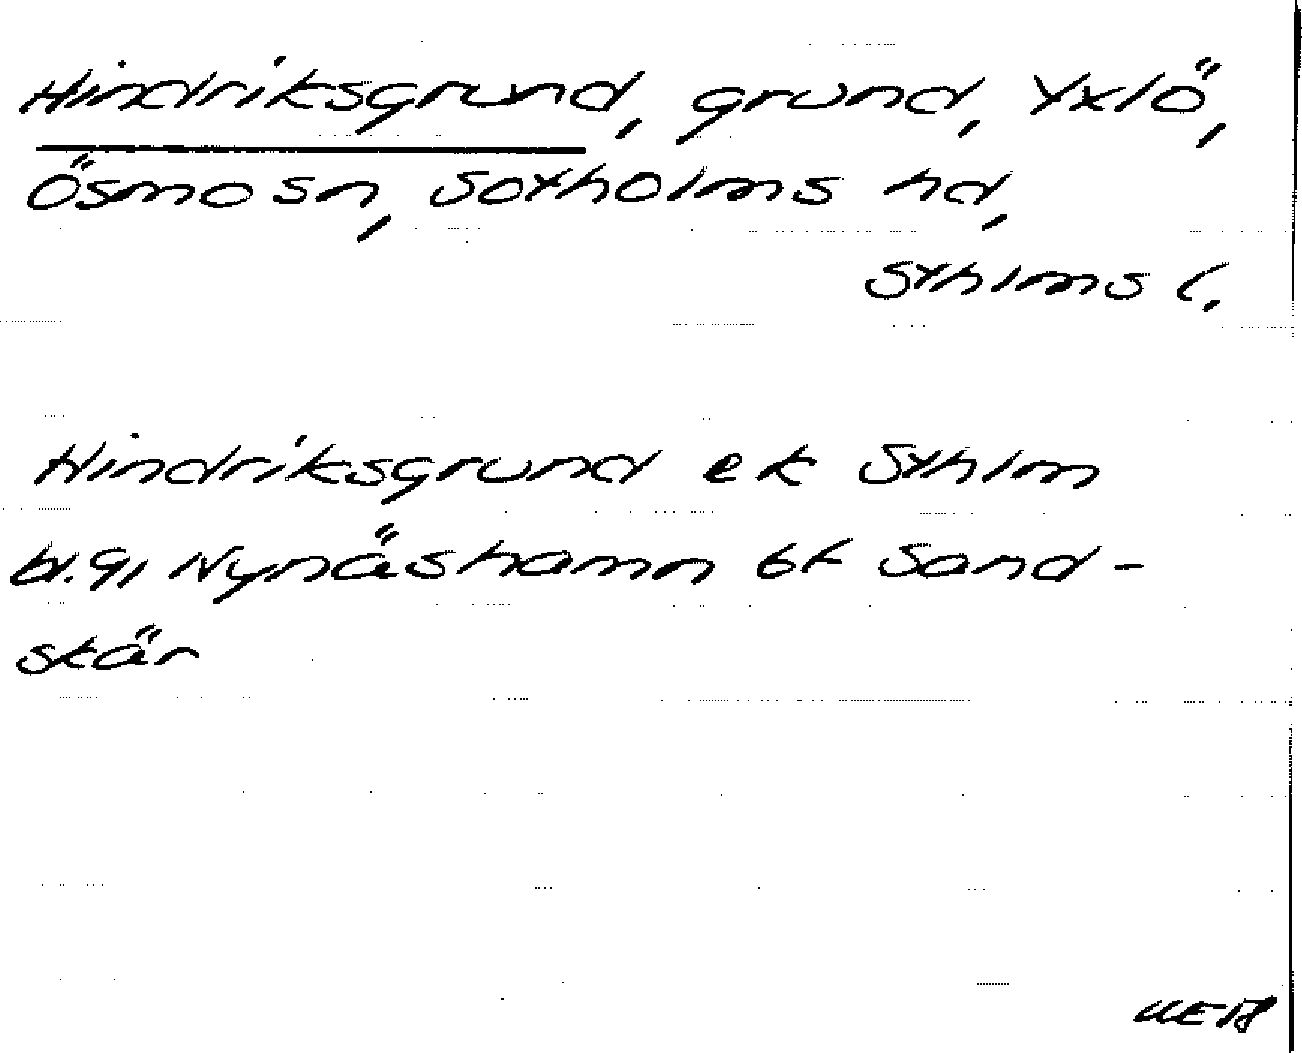 Hindriksgrund, grund, Yxlö,
Ösmo sn, Sotholms hd,
Sthlms l.
Hindriksgrund ek Sthlm
bl. 91 Nynäshamn bk Sand-
skär